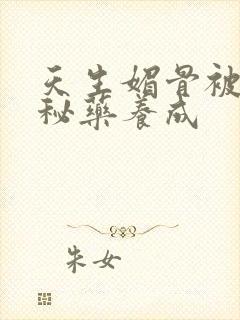 天生媚骨被
秘藥養成
朱女